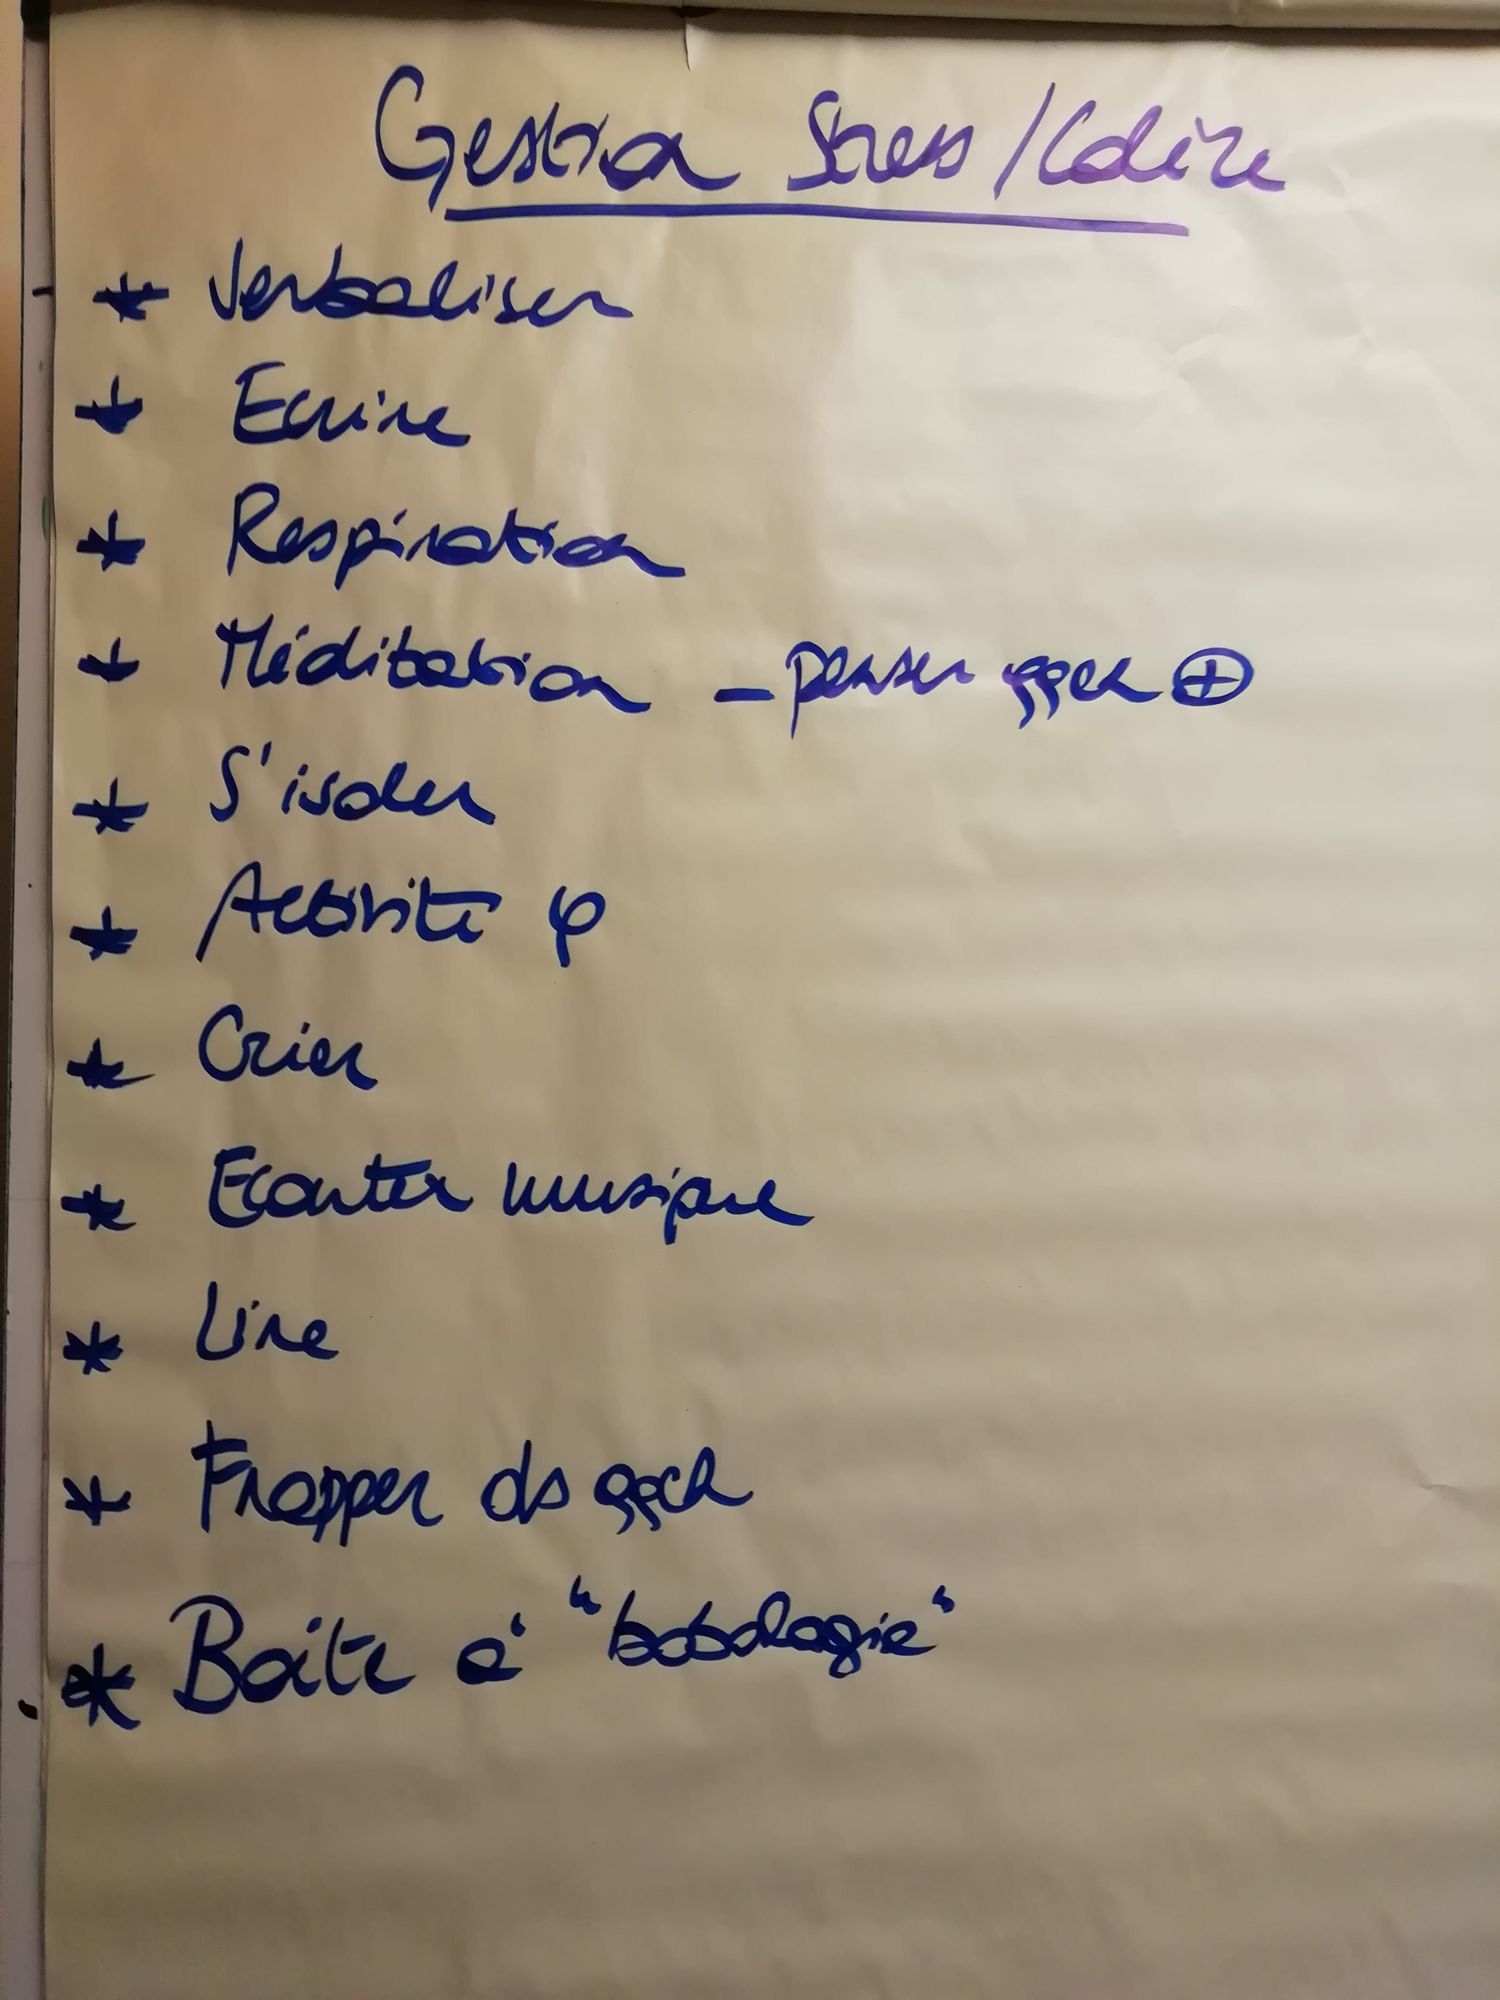 Gestion Stress / Colère
* Verbaliser
* Ecrire
* Respiration
* Méditation - penser qqch ⊕
* S'isoler
* Activité φ
* Crier
* Ecouter musique
* Lire
* Frapper ds qqch
* Boîte à "bobologie"